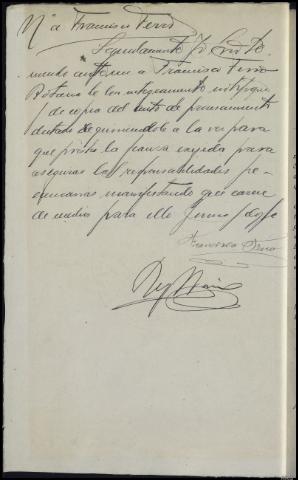 Nª a Francisco Ferro
Seguidamente Yo
mendo ante mi a Francisco Ferro
le lei integramente notifique
y di copia del auto de procesamiento
dictado requiriendole a la vez para
que preste la fianza exigida para
asegurar las responsabilidades pe-
cuniarias manifestando que carece
de medios para ello firma y doy fe
Francisco Ferro